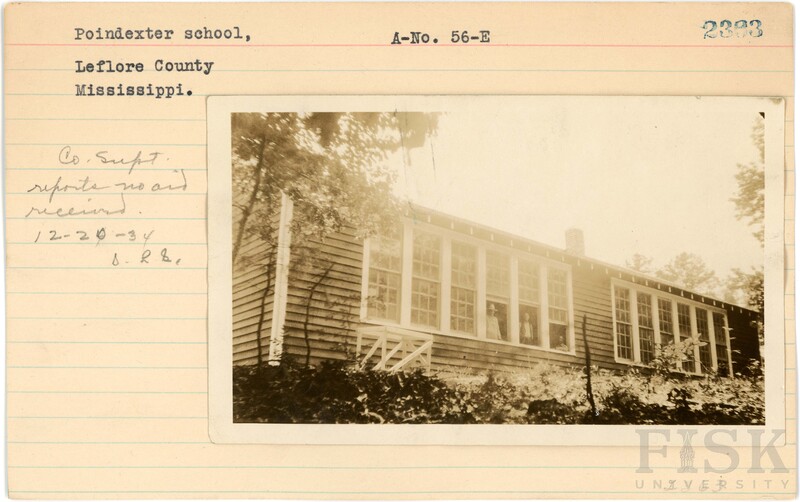 Poindexter school,
A-No. 56-E
2383
Leflore County
Mississippi.
Co. Supt.
reports no aid
received.
12-20-34
FISK
UNIVERSITY